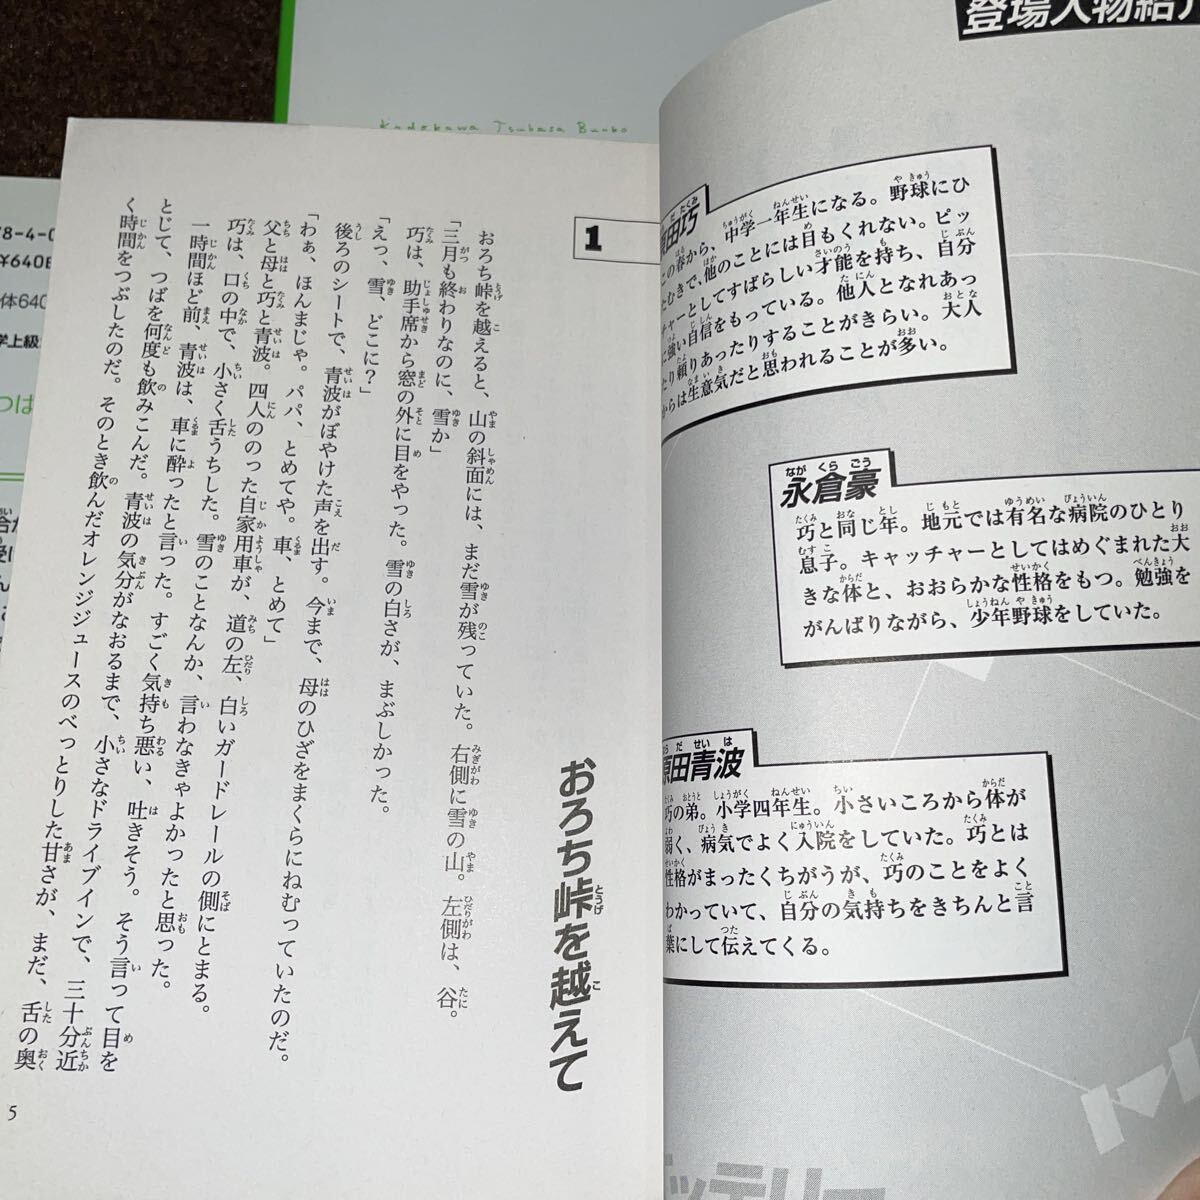 Kadokawa Tsubasa Bunko
登場人物紹介
原田巧
この春から、中学一年生になる。野球にひ
たむきで、他のことには目もくれない。ピッ
チャーとしてすばらしい才能を持ち、自分
に強い自信をもっている。他人となれあっ
たり頼りあったりすることがきらい。大人
からは生意気だと思われることが多い。
永倉豪
巧と同じ年。地元では有名な病院のひとり
息子。キャッチャーとしてはめぐまれた大
きな体と、おおらかな性格をもつ。勉強を
がんばりながら、少年野球をしていた。
原田青波
巧の弟。小学四年生。小さいころから体が
弱く、病気でよく入院をしていた。巧とは
性格がまったくちがうが、巧のことをよく
わかっていて、自分の気持ちをきちんと言
葉にして伝えてくる。
ッテリー
おろち峠を越えて
1
おろち峠を越えると、山の斜面には、まだ雪が残っていた。右側に雪の山。左側は、谷。
「三月も終わりなのに、雪か」
巧は、助手席から窓の外に目をやった。雪の白さが、まぶしかった。
「えっ、雪、どこに？」
後ろのシートで、青波がぼやけた声を出す。今まで、母のひざをまくらにねむっていたのだ。
「わぁ、ほんまじゃ。パパ、とめてや。車、とめて」
父と母と巧と青波。四人ののった自家用車が、道の左、白いガードレールの側にとまる。
巧は、口の中で、小さく舌うちした。雪のことなんか、言わなきゃよかったと思った。
一時間ほど前、青波は、車に酔ったと言った。すごく気持ち悪い、吐きそう。そう言って目を
とじて、つばを何度も飲みこんだ。青波の気分がなおるまで、小さなドライブインで、三十分近
く時間をつぶしたのだ。そのとき飲んだオレンジジュースのべっとりした甘さが、まだ、舌の奥
5
78-4-0
¥640E
体640
学上級
つば